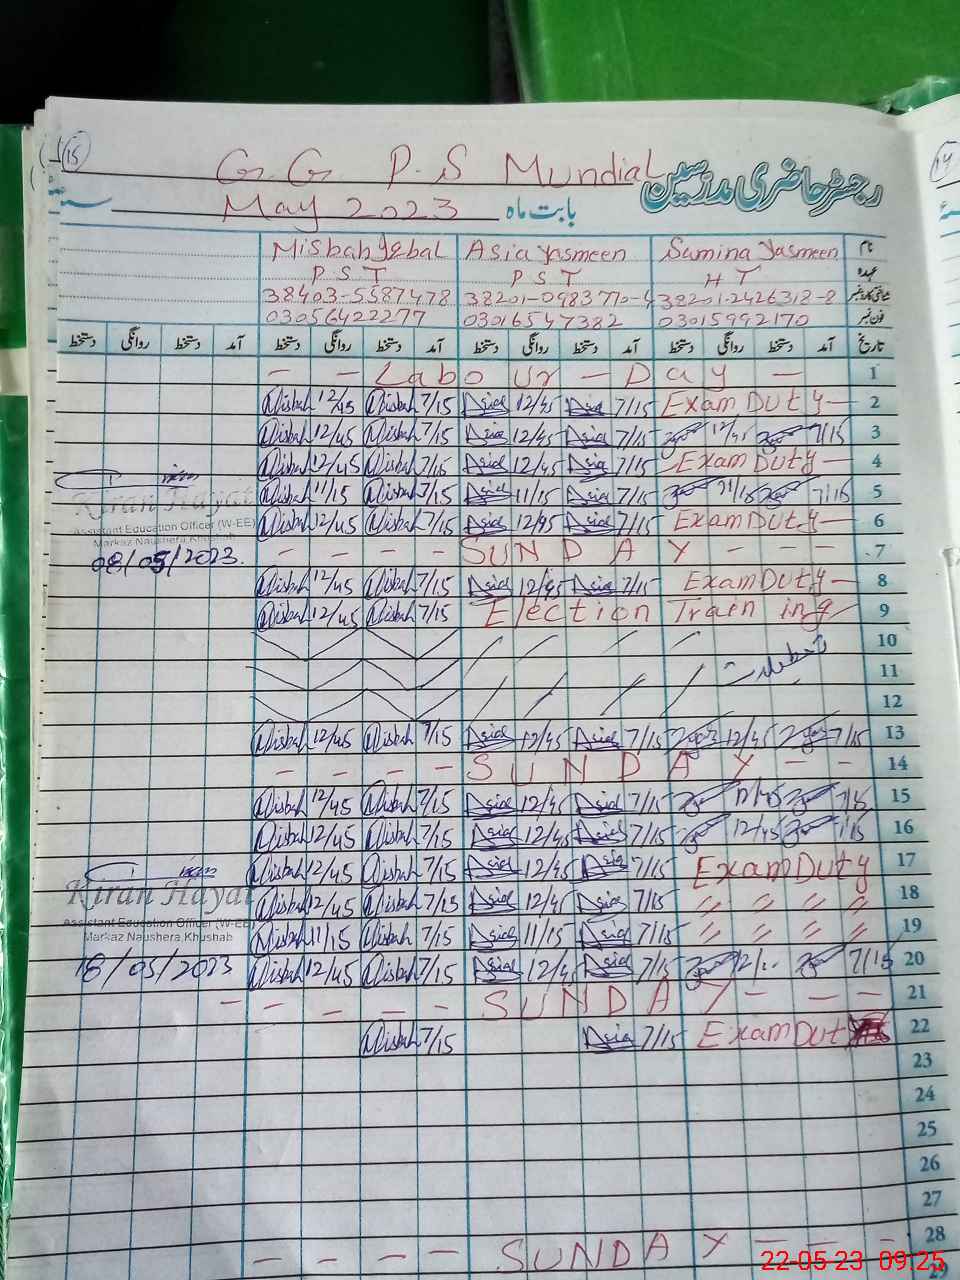 15
G.G. P.S Mundial رجسٹر حاضری مدرسین
May 2023 بابت ماہ
Misbah Iqbal Asia Yasmeen Samina Yasmeen نام
P S T P S T H T عہدہ
38403-5587478 38201-0983770-4 38201-2426318-8 شناختی کارڈ نمبر
03056422277 03016547382 03015992170 فون نمبر
دستخط روانگی دستخط آمد دستخط روانگی دستخط آمد دستخط روانگی دستخط آمد دستخط روانگی دستخط آمد تاریخ
- - Labour - Day - 1
Misbah 12/45 Misbah 7/15 Asia 12/45 Asia 7/15 Exam Duty - 2
Misbah 12/45 Misbah 7/15 Asia 12/45 Asia 7/15 12/45 7/15 3
Misbah 12/45 Misbah 7/15 Asia 12/45 Asia 7/15 Exam Duty - 4
Misbah 11/15 Misbah 7/15 Asia 11/15 Asia 7/15 11/15 7/15 5
Kiran Hayat
Assistant Education Officer (W-EE)
Markaz Naushera, Khushab
08/05/2023.
Misbah 12/45 Misbah 7/15 Asia 12/45 Asia 7/15 Exam Duty - 6
- - - - SUNDAY - - - 7
Misbah 12/45 Misbah 7/15 Asia 12/45 Asia 7/15 Exam Duty - 8
Misbah 12/45 Misbah 7/15 Election Training 9
10
تعطیلات 11
12
Misbah 12/45 Misbah 7/15 Asia 12/45 Asia 7/15 12/45 7/15 13
- - - - SUNDAY - - 14
Misbah 12/45 Misbah 7/15 Asia 12/45 Asia 7/15 12/45 7/15 15
Misbah 12/45 Misbah 7/15 Asia 12/45 Asia 7/15 12/45 7/15 16
Misbah 12/45 Misbah 7/15 Asia 12/45 Asia 7/15 Exam Duty 17
Kiran Hayat
Assistant Education Officer (W-EE)
Markaz Naushera, Khushab
18/05/2023
Misbah 12/45 Misbah 7/15 Asia 12/45 Asia 7/15 〃 〃 〃 〃 18
Misbah 11/15 Misbah 7/15 Asia 11/15 Asia 7/15 〃 〃 〃 〃 19
Misbah 12/45 Misbah 7/15 Asia 12/45 Asia 7/15 7/15 20
- - - - - SUNDAY - - - 21
Misbah 7/15 Asia 7/15 Exam Dut 22
23
24
25
26
27
- - - - SUNDAY - - - 28
29
22-05-23 09:25